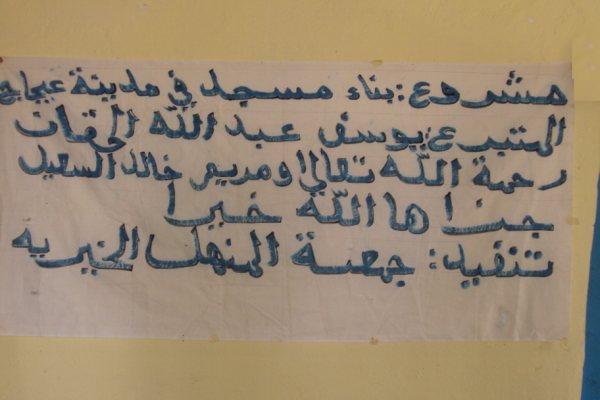 مشروع: بناء مسجد في مدينة عجاج
المتبرع: يوسف عبد الله الحقان
رحمة الله تعالى ومريم خالد السعيد
جزاها الله خيرا
تنفيد: جمعية المنهل الخيريه